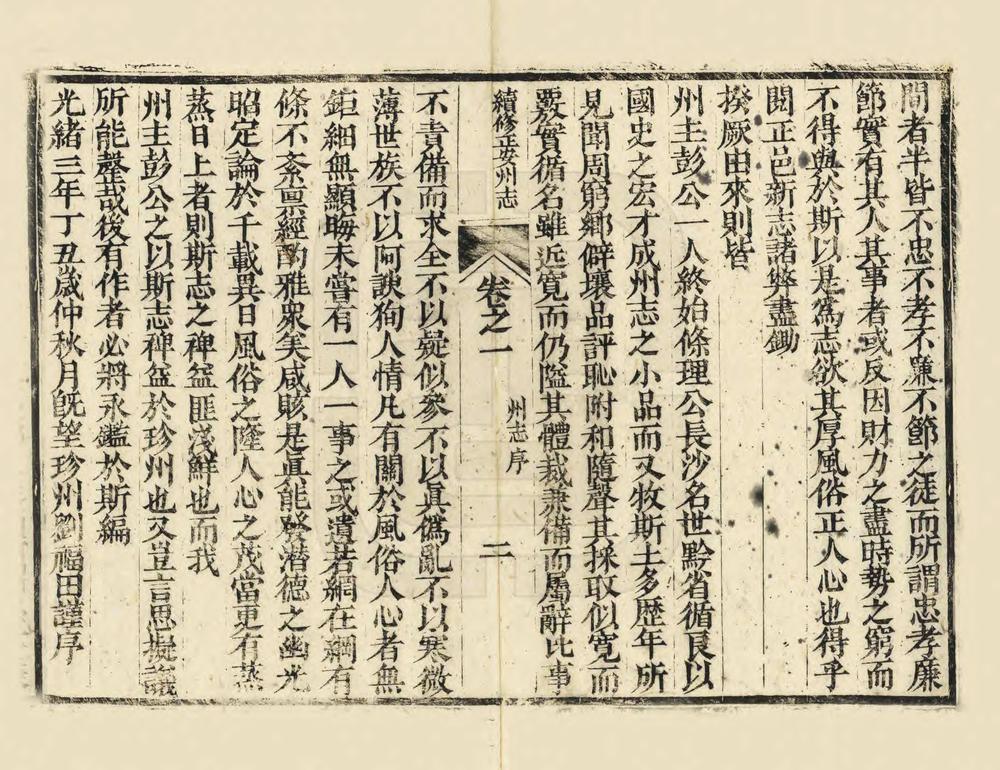 間者半皆不忠不孝不廉不節之徒而所謂忠孝廉
節實有其人其事者或反因財力之盡時勢之窮而
不得與於斯以是爲志欲其厚風俗正人心也得乎
閱正邑新志諸弊盡鋤
揆厥由來則皆
州主彭公一人終始條理公長沙名世黔省循良以
國史之宏才成州志之小品而又牧斯土多歷年所
見聞周窮鄉僻壤品評恥附和隨聲其採取似寬而
覈實循名雖近寬而仍隘其體裁兼備而屬辭比事
續修正安州志
卷之一
州志序
二
不責備而求全不以疑似參不以眞僞亂不以寒微
薄世族不以阿諛狥人情凡有關於風俗人心者無
鉅細無顯晦未嘗有一人一事之或遺若網在綱有
條不紊禀經酌雅衆美咸賅是眞能發潛德之幽光
昭定論於千載異日風俗之隆人心之茂當更有蒸
蒸日上者則斯志之裨益匪淺鮮也而我
州主彭公之以斯志裨益於珍州也又豈言思擬議
所能罄哉後有作者必將永鑑於斯編
光緒三年丁丑歲仲秋月旣望珍州劉福田謹序